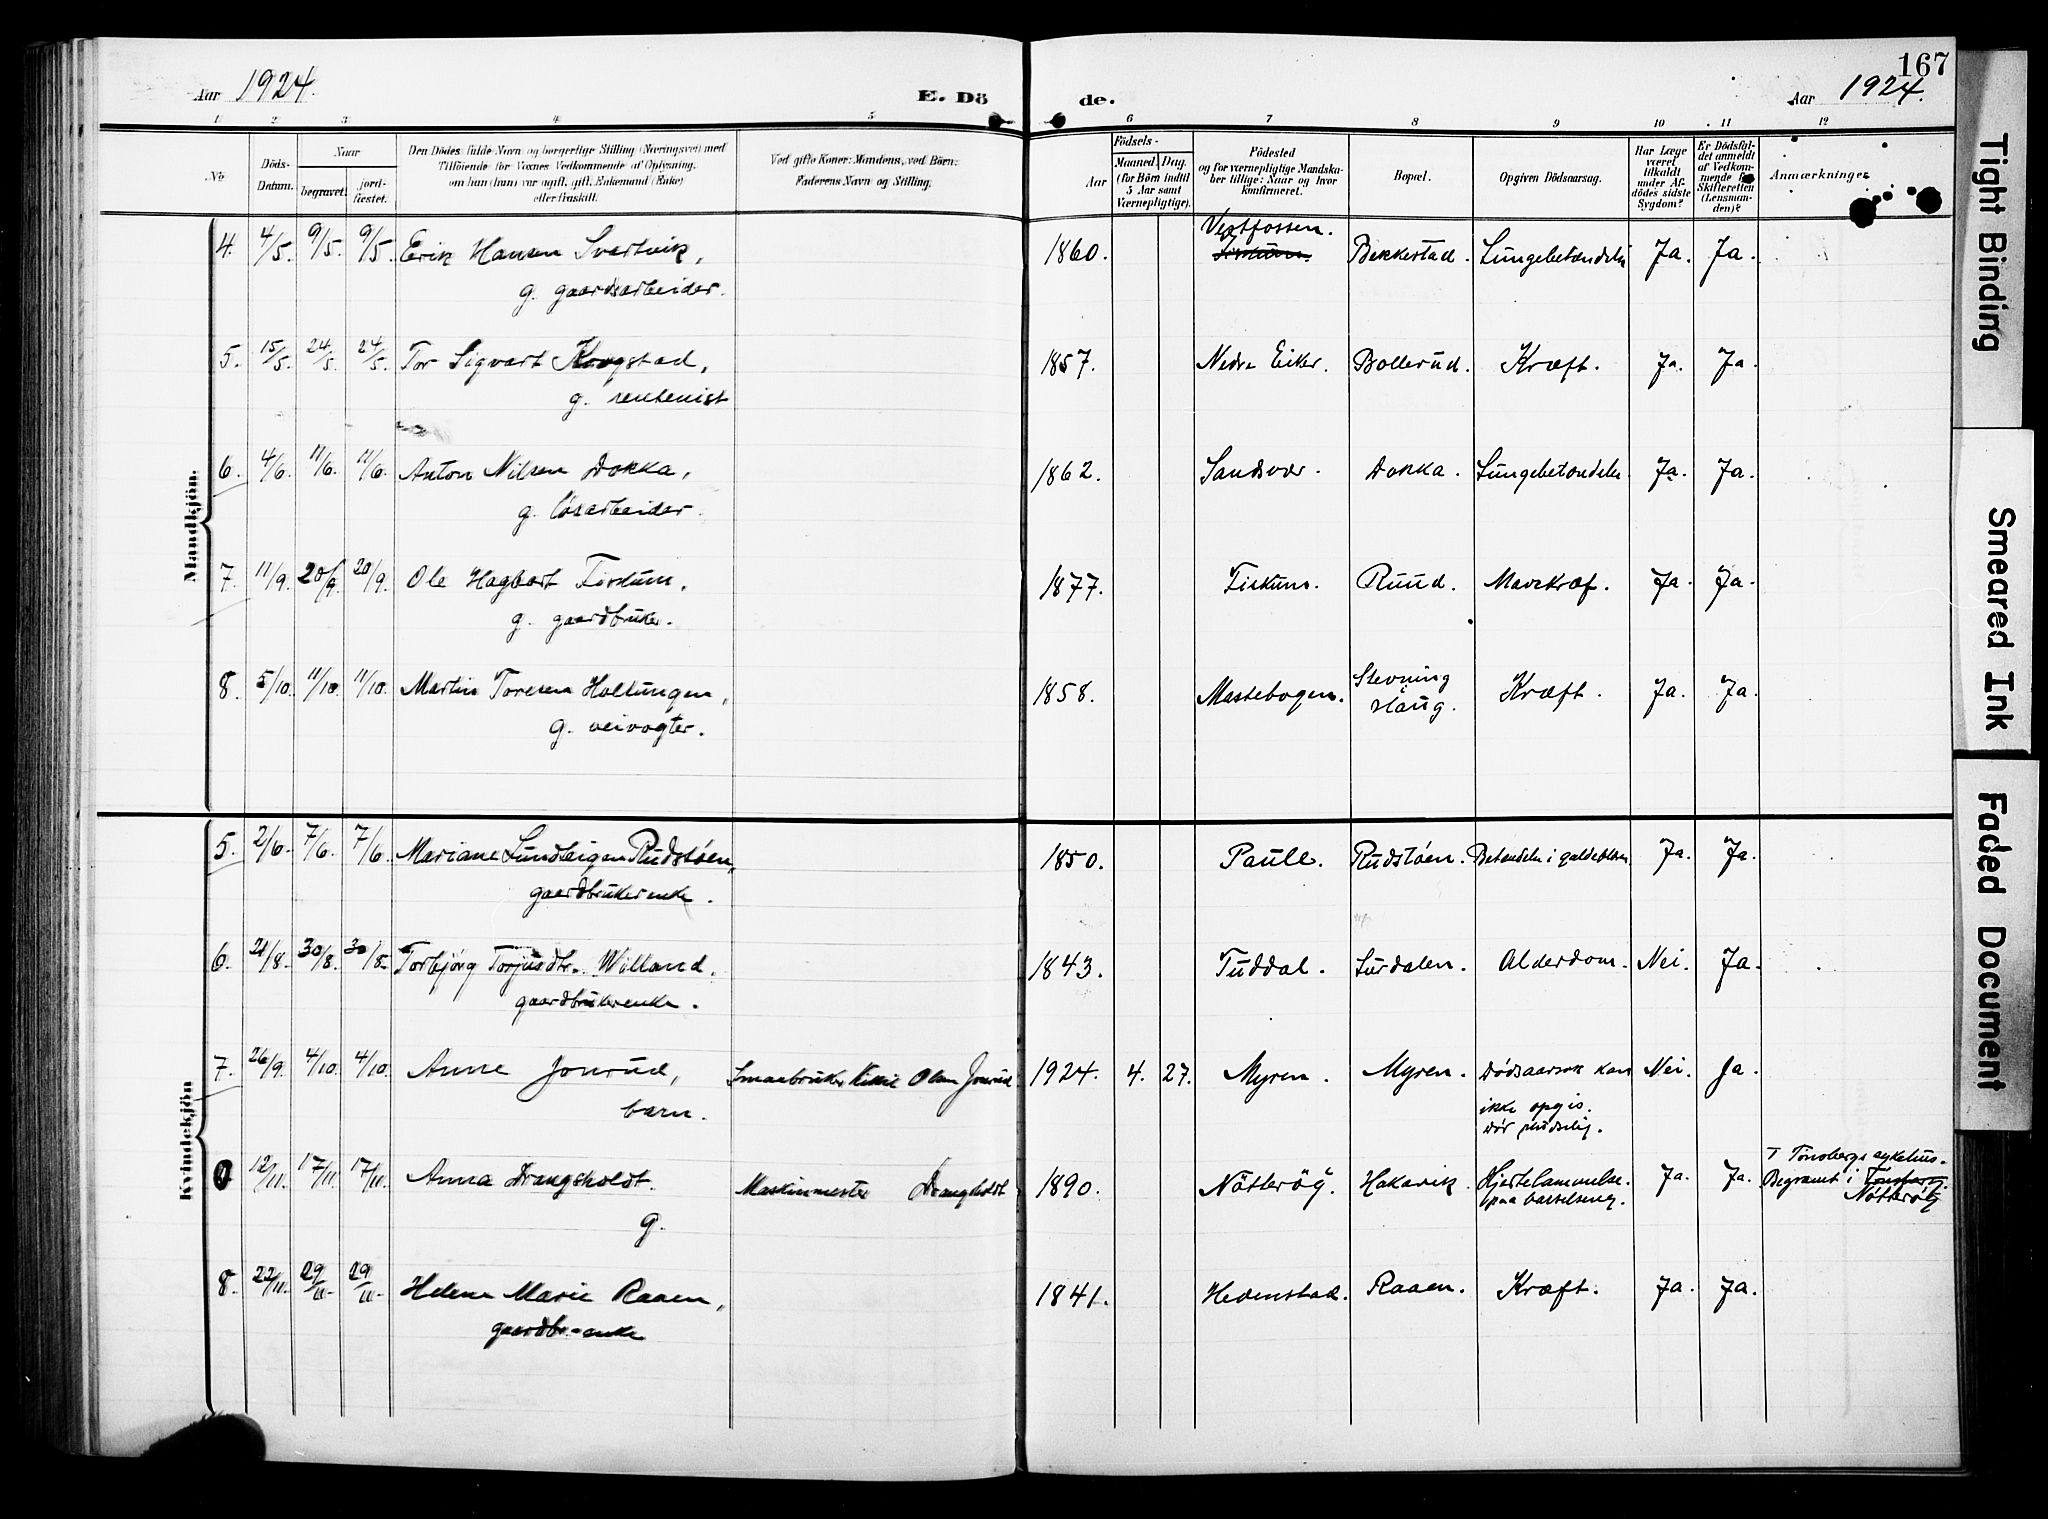 167
Aar 1924.
E. Dö
de.
Aar 1924.
1 2 3 4 5 6 7 8 9 10 11 12
No
Döds-Datum.
Naar
begravet.
jord-fæstet.
Den Dödes fulde Navn og borgerlige Stilling (Næringsvei) med
Tilföiende for Voxnes Vedkommende af Oplysning,
om han (hun) var ugift, gift, Enkemand (Enke)
eller fraskilt.
Ved gifte Koner: Mandens, ved Börn:
Faderens Navn og Stilling.
Födsels-
Aar
Maaned. Dag.
(for Börn indtil
5 Aar samt
Værnepligtige).
Födested
og for værnepligtige Mandska-
ber tillige: Naar og hvor
konfirmeret.
Bopæl.
Opgiven Dödsaarsag.
Har Læge
været
tilkaldt
under Af-
dödes sidste
Sygdom?
Er Dödsfal-
det anmeldt
af Vedkom-
mende for
Skifteretten
(Lensman-
den)?
Anmærkninger
Mandkjön.
4. 4/5. 9/5. 9/5. Erik Hansen Svartvik, 1860. Vestfossen. Fiskum. Bekkestad. Lungebetændelse Ja. Ja.
g. gaardsarbeider.
5. 15/5. 24/5. 24/5. Tor Sigvart Krogstad, 1857. Nedre Eiker. Bollerud. Kræft. Ja. Ja.
g. rentenist
6. 4/6. 11/6. 11/6. Anton Nilsen Dokka, 1862. Sandsvær. Dokka. Lungebetændelse Ja. Ja.
g. løsarbeider.
7. 11/9. 20/9. 20/9. Ole Hagbart Fiskum, 1877. Fiskum. Ruud. Mavekræf. Ja. Ja.
g. gaardbruker.
8. 5/10. 11/10. 11/10. Martin Toresen Holtungen, 1858. Mastebogen. Stevning Kræft. Ja. Ja.
g. veivogter. Haug.
Kvindekjön
5. 2/6. 7/6. 7/6. Mariane Lundteigen Rudstøen, 1850. Paule. Rudstøen. Betændelse i galdeblæren Ja. Ja.
gaardbrukerenke.
6. 21/8. 30/8. 30/8. Torbjørg Torjusdtr. Willand. 1843. Tuddal. Surdalen. Alderdom. Nei. Ja.
gaardbrukerenke.
7. 26/9. 4/10. 4/10. Anne Jonrud, Smaabruker Kittil Olsen Jonrud 1924. 4. 27. Myren. Myren. Dødsaarsak kan Nei. Ja.
barn. ikke opgis.
Dør pludselig.
0 12/11. 17/11. 17/11. Anna Drangsholdt. Maskinmester Drangholdt 1890. Nötteröy. Hakavik. Hjertelammelse Ja. Ja. Tønsbergs sykehus.
g. paa barselseng. Begravet i Tønsberg.
Nötteröy
8. 22/11. 29/11. 29/11. Helene Marie Raaen, 1841. Hedenstad. Raaen. Kræft. Ja. Ja.
gaardbr-enke
Tight Binding
Smeared Ink
Faded Document